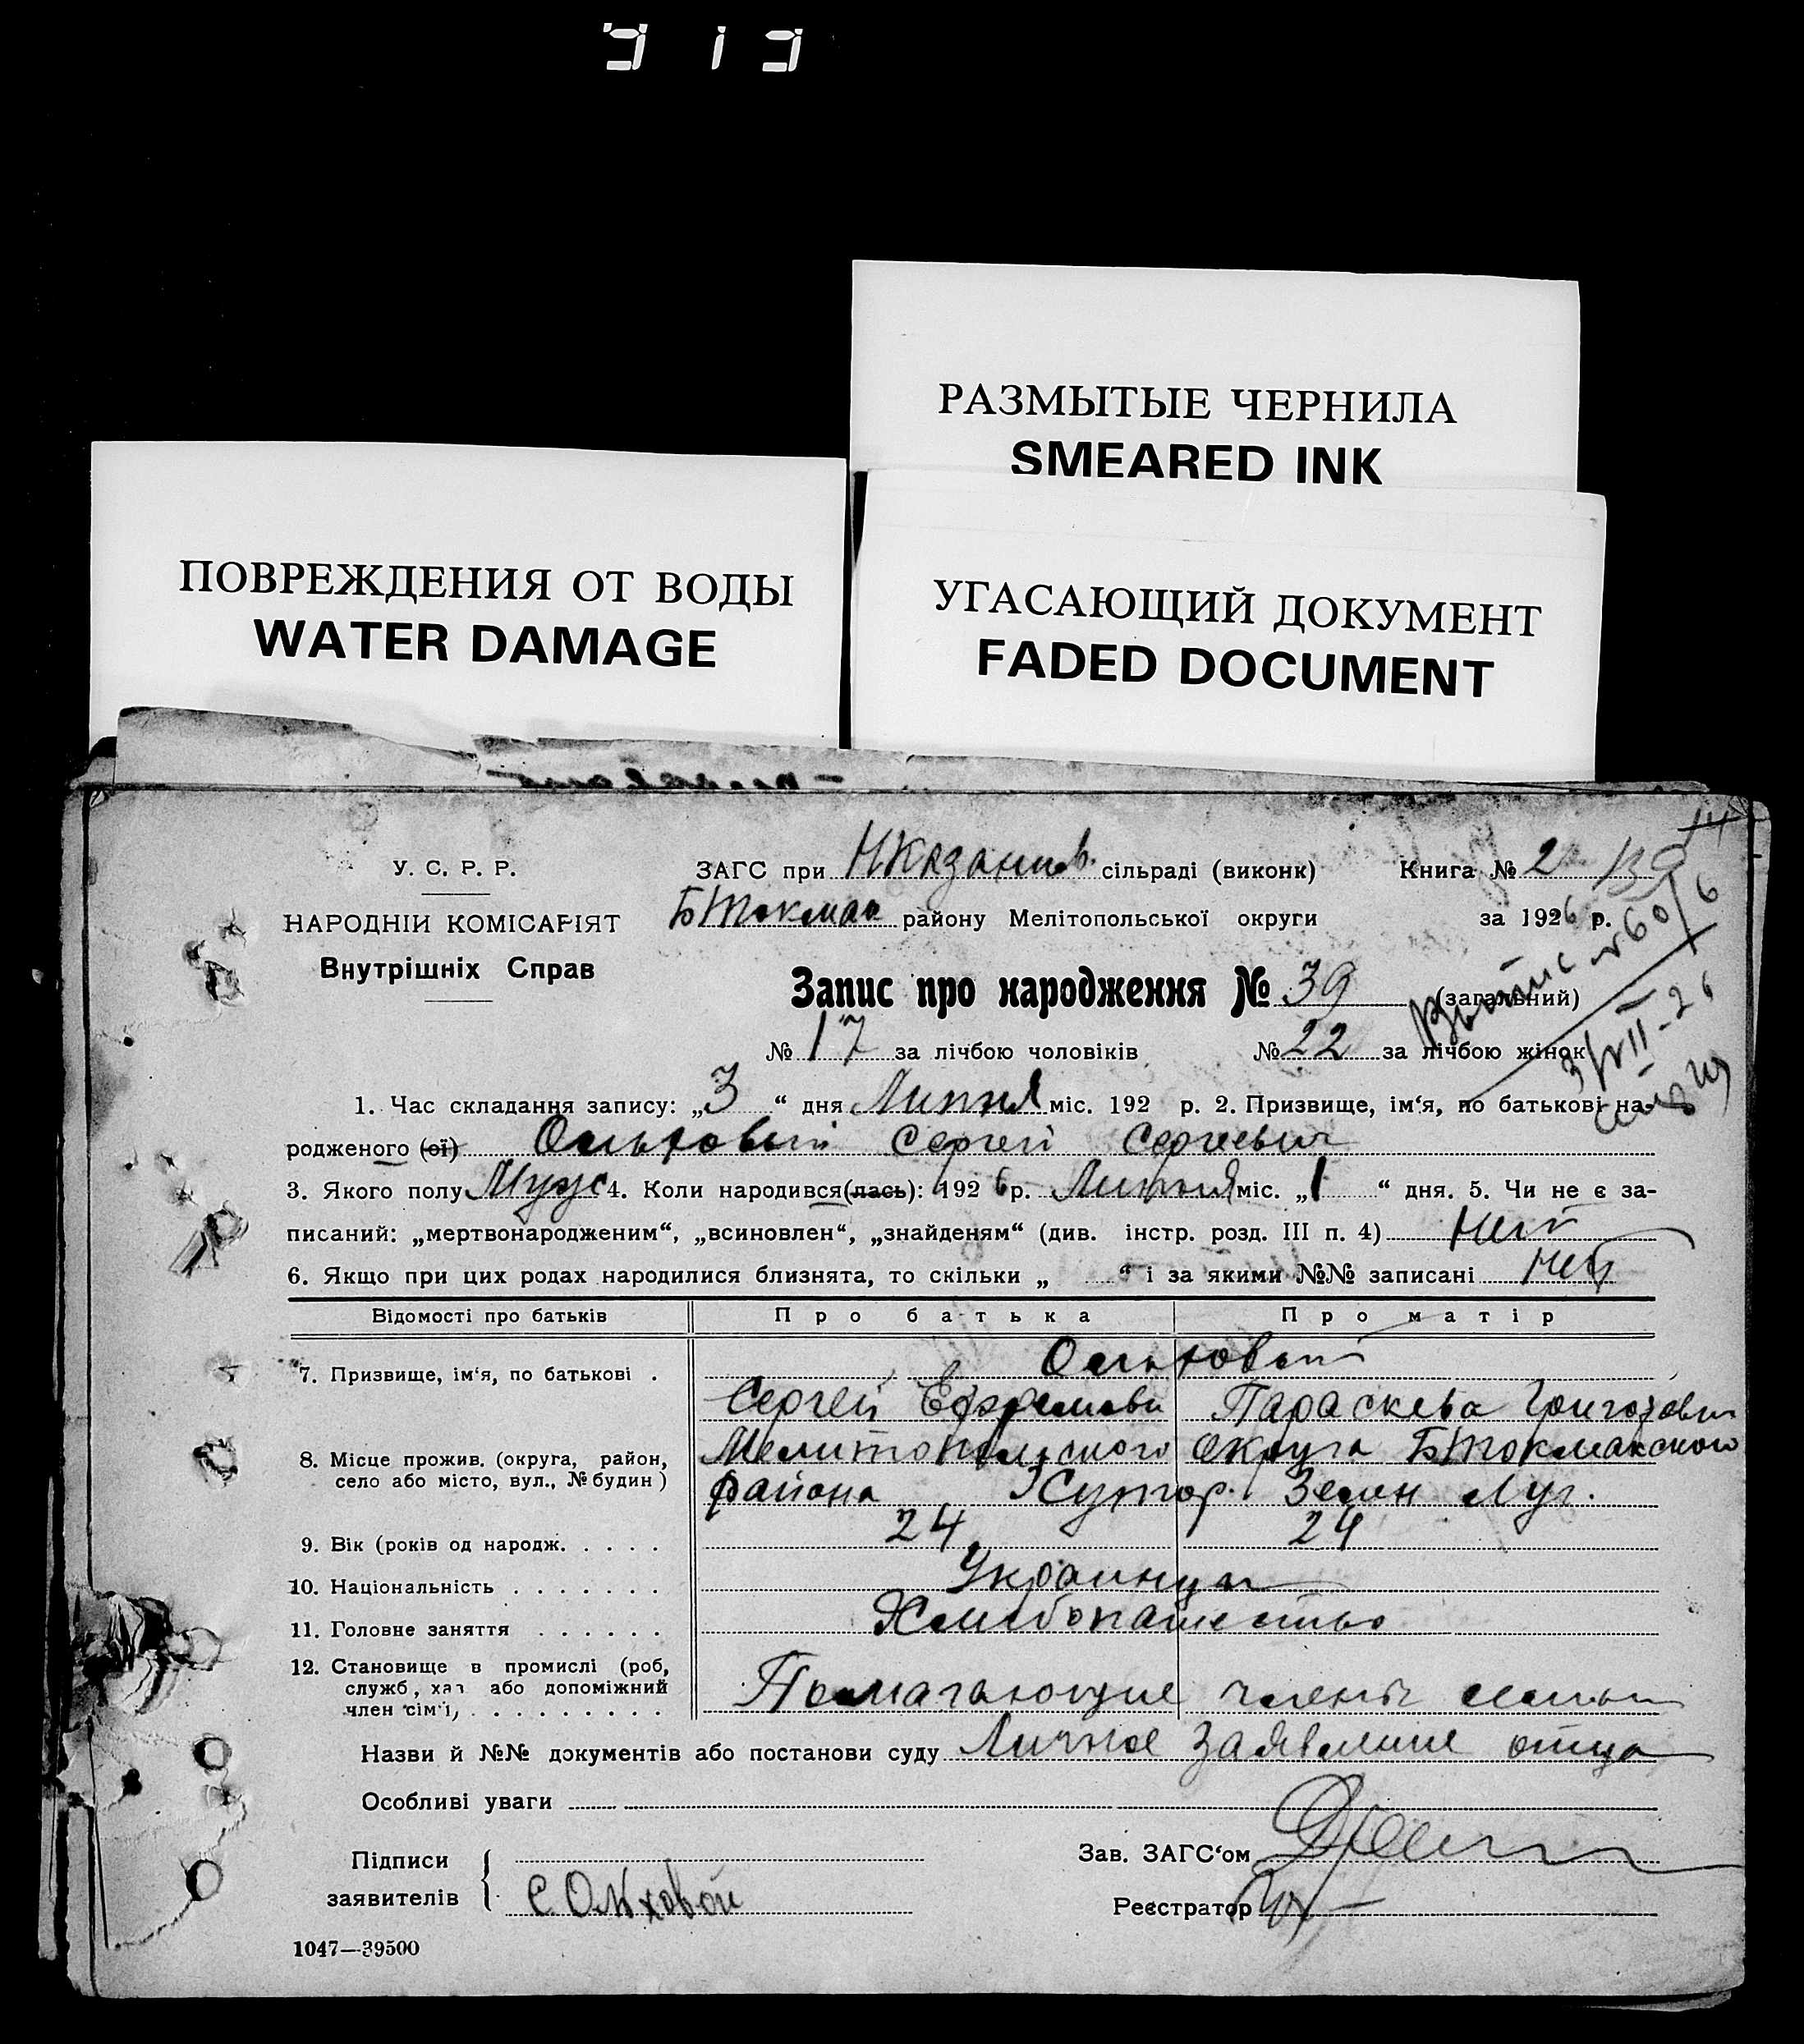 313
РАЗМЫТЫЕ ЧЕРНИЛА
SMEARED INK
ПОВРЕЖДЕНИЯ ОТ ВОДЫ
WATER DAMAGE
УГАСАЮЩИЙ ДОКУМЕНТ
FADED DOCUMENT
14
У. С. Р. Р.
ЗАГС при НКазанив. сільраді (виконк)
Книга № 2 139
НАРОДНІЙ КОМІСАРІЯТ
БТокмак району Мелітопольської округи
за 1926 р.
Внутрішніх Справ
Запис про народження № 39 (загальний)
Выпис №60/6
3/VII-26
№ 17 за лічбою чоловіків № 22 за лічбою жінок
1. Час складання запису: „3“ дня Липня міс. 192 р. 2. Призвище, ім‘я, по батькові на-
родженого (ої) Ольховый Сергей Сергеевич
3. Якого полу Муж 4. Коли народився(лась): 1926 р. Липня міс. „1“ дня. 5. Чи не є за-
писаний: „мертвонародженим“, „всиновлен“, „знайденям“ (див. інстр. розд. III п. 4) Нет
6. Якщо при цих родах народилися близнята, то скільки „ “ і за якими №№ записані Нет
Відомості про батьків Про батька Про матір
7. Призвище, ім‘я, по батькові . Ольховый
Сергей Ефремови Параскева Григоровн
8. Місце прожив. (округа, район, Мелитопольского округа БТокмакского
село або місто, вул., № будин) района Хутор. Зелен Луг.
9. Вік (років од народж. . . . . 24 24
10. Національність . . . . . . . Украинцы
11. Головне заняття . . . . . . Хлибопашество
12. Становище в промислі (роб,
служб, хаз або допоміжний Помагающие члены семьи
член сім‘ї, . . . . . . . . .
Назви й №№ документів або постанови суду Личное заявление отца
Особливі уваги
Підписи
Зав. ЗАГС‘ом
заявителів С Олхховой
Реєстратор
1047—39500